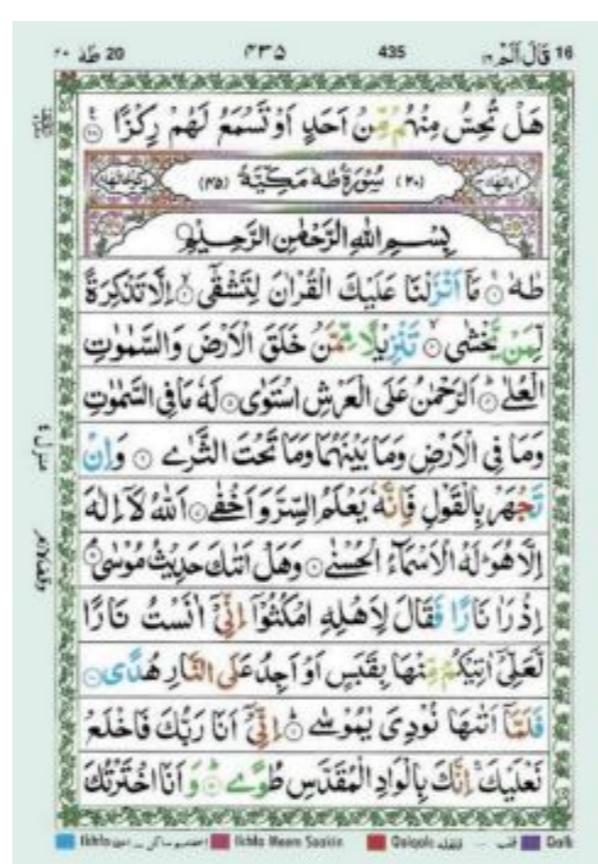 ٢٠ طٰهٰ 20 ٤٣٥ 435 قَالَ اَلَمْ ١٦ 16
هَلْ تُحِسُّ مِنْهُمْ مِّنْ اَحَدٍ اَوْ تَسْمَعُ لَهُمْ رِكْزًا ۝
(٢٠) سُوْرَةُ طٰهٰ مَكِّيَّةٌ (٤٥)
بِسْمِ اللّٰهِ الرَّحْمٰنِ الرَّحِيْمِ
طٰهٰ ۝ مَآ اَنْزَلْنَا عَلَيْكَ الْقُرْاٰنَ لِتَشْقٰٓى ۝ اِلَّا تَذْكِرَةً
لِّمَنْ يَّخْشٰى ۝ تَنْزِيْلًا مِّمَّنْ خَلَقَ الْاَرْضَ وَالسَّمٰوٰتِ
الْعُلٰى ۝ اَلرَّحْمٰنُ عَلَى الْعَرْشِ اسْتَوٰى ۝ لَهٗ مَا فِى السَّمٰوٰتِ
وَمَا فِى الْاَرْضِ وَمَا بَيْنَهُمَا وَمَا تَحْتَ الثَّرٰى ۝ وَاِنْ
تَجْهَرْ بِالْقَوْلِ فَاِنَّهٗ يَعْلَمُ السِّرَّ وَاَخْفٰى ۝ اَللّٰهُ لَآ اِلٰهَ
اِلَّا هُوَ ؕ لَهُ الْاَسْمَآءُ الْحُسْنٰى ۝ وَهَلْ اَتٰىكَ حَدِيْثُ مُوْسٰى ۝
اِذْ رَاٰ نَارًا فَقَالَ لِاَهْلِهِ امْكُثُوْٓا اِنِّىْٓ اٰنَسْتُ نَارًا
لَّعَلِّىْٓ اٰتِيْكُمْ مِّنْهَا بِقَبَسٍ اَوْ اَجِدُ عَلَى النَّارِ هُدًى ۝
فَلَمَّآ اَتٰىهَا نُوْدِىَ يٰمُوْسٰى ۝ اِنِّىْٓ اَنَا رَبُّكَ فَاخْلَعْ
نَعْلَيْكَ ۚ اِنَّكَ بِالْوَادِ الْمُقَدَّسِ طُوًى ۝ وَاَنَا اخْتَرْتُكَ
Ikhfa Ikhfa Meem Saakin Qalqala قلقلہ قلب Qalb